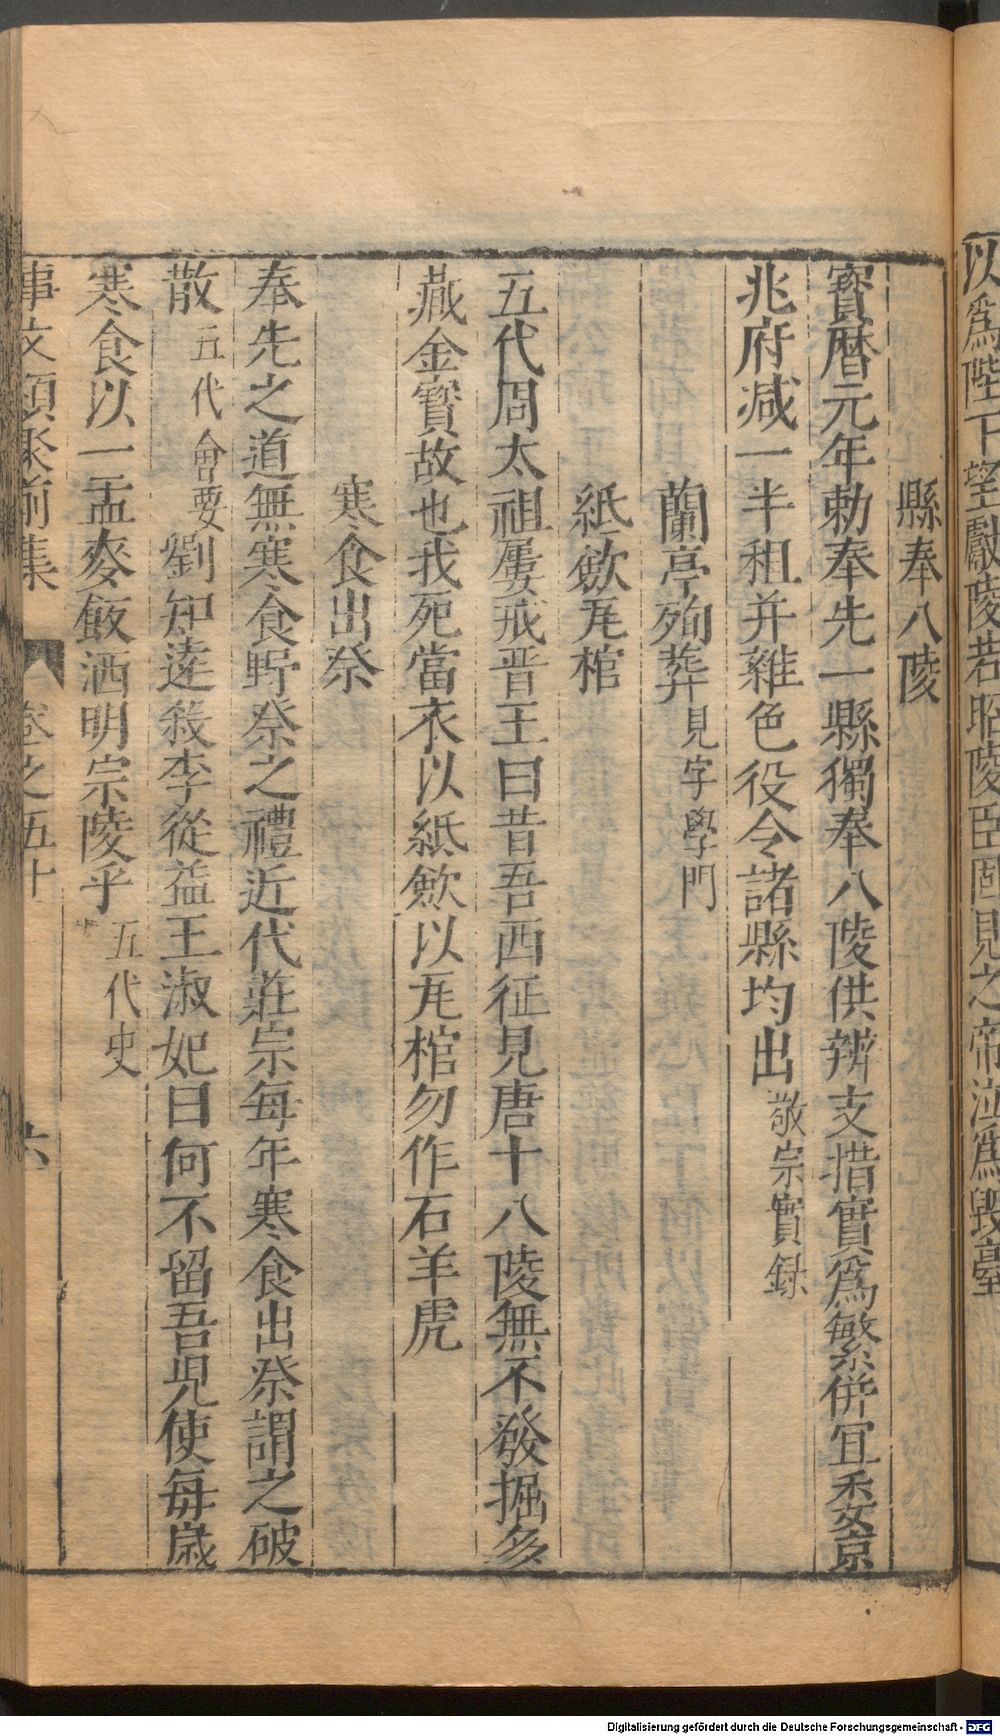 以爲陛下望獻陵若昭陵臣固見之帝泣爲毀臺
縣奉八陵
寳曆元年勅奉先一縣獨奉八陵供辨支措實爲繁併宜委京
兆府减一半租并雜色役令諸縣均出敬宗實録
蘭亭殉葬見字學門
紙歛瓦棺
五代周太祖屢戒晋王曰昔吾西征見唐十八陵無不發掘多
藏金寳故也我死當衣以紙歛以瓦棺勿作石羊虎
寒食出祭
奉先之道無寒食野祭之禮近代莊宗每年寒食出祭謂之破
散五代會要劉知遠殺李從益王淑妃曰何不留吾兒使每歲
寒食以一盂麥飯洒明宗陵乎五代史
事文類聚前集 卷之五十 六
Digitalisierung gefördert durch die Deutsche Forschungsgemeinschaft - DFG